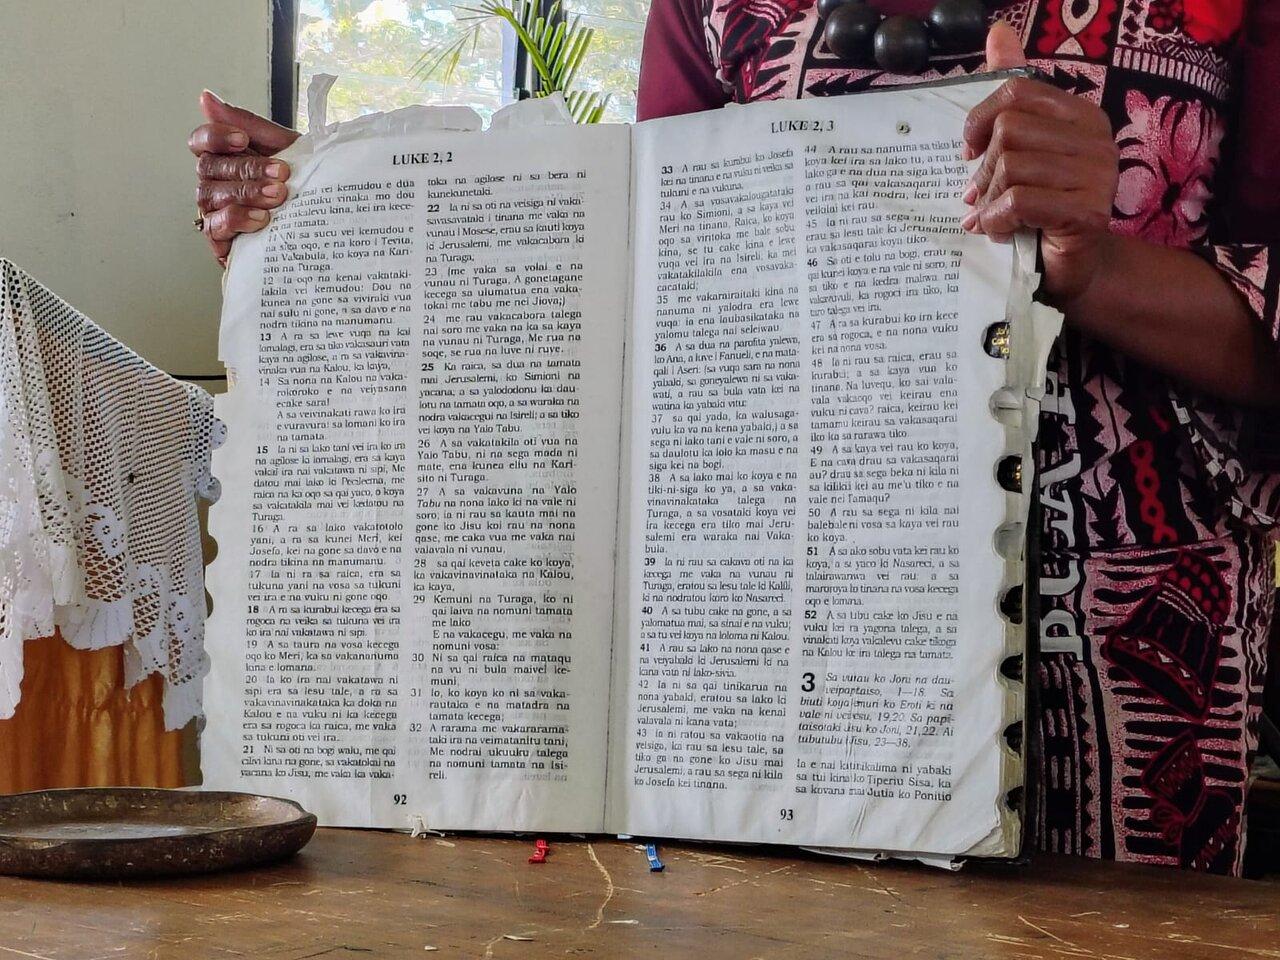 LUKE 2, 2
mai vei kemudou e dua
vinaka mo dou
vakalevu kina, kei ira kece-
ga na tamata.
11 Ni sa sucu vei kemudou e
na siga oqo, e na koro i Tevita,
na Vakabula, ko koya na Kari-
sito na Turaga.
12 Ia oqo na kenai vakataki-
lakila vei kemudou: Dou na
kunea na gone sa viviraki vua
nai sulu ni gone, a sa davo e na
nodra tikina na manumanu.
13 A ra sa lewe vuqa na kai
lomalagi, era sa tiko vakasauri vata
kaya na agilose, a ra sa vakavina-
vinaka vua na Kalou, ka kaya,
14 Sa nona na Kalou na vaka-
rokoroko e na veiyasana
ecake sara!
A sa veivinakati rawa ko ira
e vuravura: sa lomani ko ira
na tamata.
15 Ia ni sa lako tani vei ira ko ira
na agilose ki lomalagi, era sa kaya
vakai ira nai vakatawa ni sipi, Me
datou mai lako ki Peceliema, me
raica na ka oqo sa qai yaco, o koya
sa vakatakila mai vei kedatou na
Turaga.
16 A ra sa lako vakatotolo
yani, a ra sa kunei Meri, kei
Josefa, kei na gone sa davo e na
nodra tikina na manumanu.
17 Ia ni ra sa raica, era sa
tukuna yani na vosa sa tukuni
vei ira e na vuku ni gone oqo.
18 A ra sa kurabui kecega era sa
rogoca na veika sa tukuna vei ira
ko ira nai vakatawa ni sipi.
19 A sa taura na vosa kecega
oqo ko Meri, ka sa vakananuma
kina e lomana.
20 Ia ko ira nai vakatawa ni
sipi era sa lesu tale, a ra sa
vakavinavinakataka ka doka na
Kalou e na vuku ni ka kecega
era sa rogoca ka raica, me vaka
sa tukuna oti vei ira.
21 Ni sa oti na bogi walu, me qai
cilivi kina na gone, sa vakatokai na
yacana ko Jisu, me vaka na vaka-
toka na agilose ni sa bera ni
kunekunetaki.
22 Ia ni sa oti na veisiga ni vaka-
savasavataki i tinana me vaka na
vunau i Mosese, erau sa kauti koya
ki Jerusalemi, me vakacabora ki
na Turaga.
23 (me vaka sa volai e na
vunau ni Turaga, A gonetagane
kecega sa ulumatua ena vaka-
tokai me tabu me nei Jiova;)
24 me rau vakacabora talega
nai soro me vaka na ka sa kaya
na vunau ni Turaga, Me rua na
soqe, se rua na luve ni ruve.
25 Ka raica, sa dua na tamata
mai Jerusalemi, ko Simioni na
yacana; a sa yalododonu ka dau-
lotu na tamata oqo, a sa waraka na
nodra vakacegui na Isireli; a sa tiko
vei koya na Yalo Tabu.
26 A sa vakatakila oti vua na
Yalo Tabu, ni na sega mada ni
mate, ena kunea eliu na Kari-
sito ni Turaga.
27 A sa vakavuna na Yalo
Tabu na nona lako ki na vale ni
soro; ia ni rau sa kauta mai na
gone ko Jisu koi rau na nona
qase, me caka vua me vaka nai
valavala ni vunau,
28 sa qai keveta cake ko koya,
ka vakavinavinaka na Kalou,
ka kaya,
29 Kemuni na Turaga, ko ni
qai laiva na nomuni tamata
me lako
E na vakacegu, me vaka na
nomuni vosa:
30 Ni sa qai raica na mataqu
na vu ni bula maivei ke-
muni,
31 Io, ko koya ko ni sa vaka-
rautaka e na matadra na
tamata kecega;
32 A rarama me vakararama-
taki ira na veimatanitu tani,
Me nodrai ukuuku talega
na nomuni tamata na Isi-
reli.
92
LUKE 2, 3
33 A rau sa kurabui ko Josefa
kei na tinana e na vuku ni veika sa
tukuni e na vukuna.
34 A sa vosavakalougatataki
rau ko Simioni, a sa kaya vei
Meri na tinana, Raica, ko koya
oqo sa viritoka me bale sobu
kina, se tu cake kina e lewe
vuqa vei ira na Isireli, ka me
vakatakilakila ena vosavaka-
cacataki;
35 me vakamiraitaki kina na
nanuma ni yalodra era lewe
vuqa: ia ena laubasikataka na
yalomu talega nai seleiwau.
36 A sa dua na parofita yalewa,
ko Ana, a luve i Fanueli, e na mata-
qali i Aseri: (sa vuqa sara na nona
yabaki, sa goneyalewa ni sa vaka-
wati, a rau sa bula vata na
watina ka yabaki vitu:
37 sa qai yada, ka walusaga-
vulu ka va na kena yabaki,) a sa
sega ni lako tani e vale ni soro, a
sa daulotu ka lolo ka masu e na
siga kei na bogi.
38 A sa lako mai ko koya e na
tiki-ni-siga ko ya, a sa vaka-
vinavinakataka talega na
Turaga, a sa vosataki koya vei
ira kecega era tiko mai Jeru-
salemi era waraka nai Vaka-
bula.
39 Ia ni rau sa cakava oti na ka
kecega me vaka na vunau ni
Turaga, eratou sa lesu tale ki Kalili,
ki na nodratou koro ko Nasareci.
40 A sa tubu cake na gone, a sa
yalomatua mai, sa sinai e na vuku;
a sa tu vei koya na loloma ni Kalou.
41 A rau sa lako na nona qase e
na veiyabaki ki Jerusalemi ki na
kana vata ni lako-sivia.
42 Ia ni sa qai tinikarua na
nona yabaki, eratou sa lako ki
Jerusalemi, me vaka na kenai
valavala ni kana vata;
43 Ia ni ratou sa vakaotia na
veisiga, ka rau sa lesu tale, sa
tiko ga na gone ko Jisu mai
Jerusalemi; a rau sa sega ni kila
ko Josefa kei tinana.
44 A rau sa nanuma sa tiko ko
koya kei ira sa lako tu, a rau sa
lako ga e na dua na siga ka bogi;
a rau sa qai vakasaqarai koya
e na ira na kai nodra, kei ira era
veikilai kei rau.
45 Ia ni rau sa sega ni kunea
erau sa lesu tale ki Jerusalemi
ka vakasaqarai koya tiko.
46 Sa oti e tolu na bogi, erau sa
qai kunei koya e na vale ni soro, ni
sa tiko e na kedra maliwa, nai
vakavuvuli, ka rogoci ira tiko, ka
taro talega vei ira.
47 A ra sa kurabui ko ira kece
era sa rogoca, e na nona vuku
kei na nona vosa.
48 Ia ni rau sa raica, erau sa
kurabui: a sa kaya vua ko
tinana, Na luvequ, ko sai vala-
vala vakaoqo vei keirau ena
vuku ni cava? raica, keirau kei
tamamu keirau sa vakasaqarai
iko ka sa rarawa tiko.
49 A sa kaya vei rau ko koya,
E na cava drau sa vakasaqarai
au? drau sa sega beka ni kila ni
sa kilikili kei au me'u tiko e na
vale nei Tamaqu?
50 A rau sa sega ni kila nai
balebale ni vosa sa kaya vei rau
ko koya.
51 A sa ako sobu vata kei rau ko
koya, a sa yaco ki Nasareci, a sa
talairawarawa vei rau: a sa
maroroya ko tinana na vosa kecega
oqo e lomana.
52 A sa tubu cake ko Jisu e na
vuku kei na yagona talega, a sa
vinakati koya vakalevu cake tikoga
na Kalou ke ira talega na tamata.
3 Sa vutau ko Joni na dau-
veipapitaiso, 1—18. Sa
biuti koya emuri ko Eroti ki na
vale ni veivesu, 19,20. Sa papi-
taisotaki Jisu ko Joni, 21,22. Ai
tubutubu i Jisu, 23—38.
Ia e nai katitikalima ni yabaki
sa tui kina ko Tiperiu Sisa, ka
sa kovana mai Jutia ko Ponitio
93